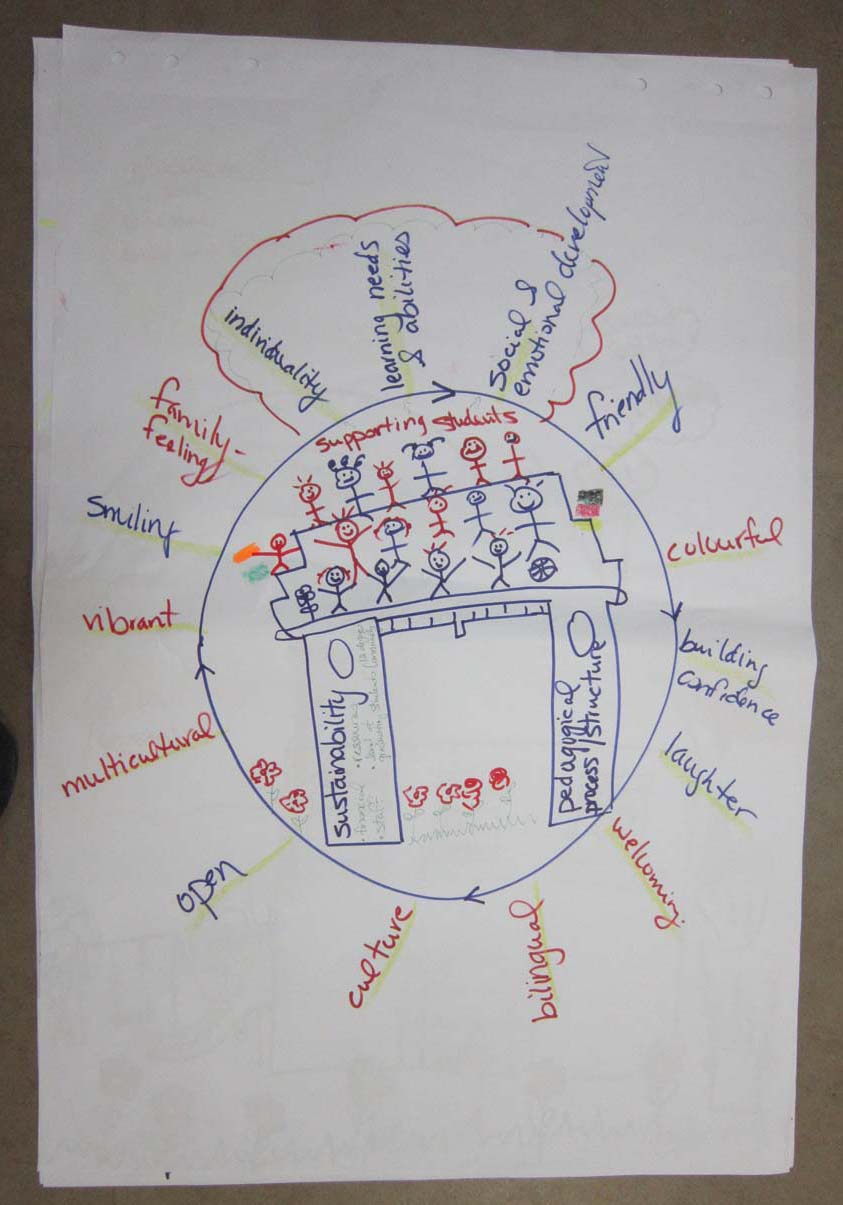 individuality
learning needs
& abilities
social &
emotional development
family-
feeling
friendly
supporting students
smiling
colourful
vibrant
building
confidence
multicultural
laughter
sustainability
• financial
• staff
• resourcing
• level of
pedagogical
process/structure
open
welcoming.
culture
bilingual